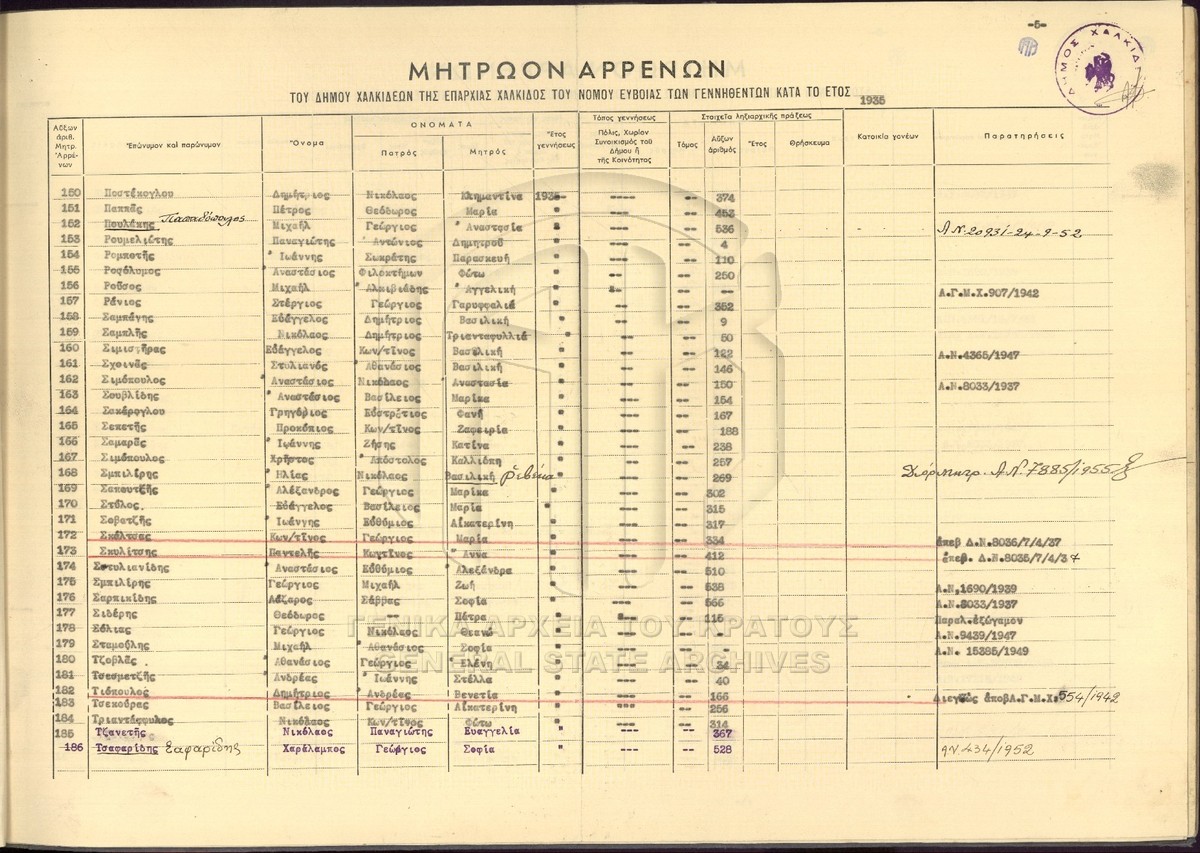 -5-
ΔΗΜΟΣ ΧΑΛΚΙΔ
ΜΗΤΡΩΟΝ ΑΡΡΕΝΩΝ
ΤΟΥ ΔΗΜΟΥ ΧΑΛΚΙΔΕΩΝ ΤΗΣ ΕΠΑΡΧΙΑΣ ΧΑΛΚΙΔΟΣ ΤΟΥ ΝΟΜΟΥ ΕΥΒΟΙΑΣ ΤΩΝ ΓΕΝΝΗΘΕΝΤΩΝ ΚΑΤΑ ΤΟ ΕΤΟΣ 1935
Αὔξων ἀριθ. Μητρ. Ἀρρένων Ἐπώνυμον καὶ παρώνυμον Ὄνομα ΟΝΟΜΑΤΑ Πατρός Μητρός Ἔτος γεννήσεως Τόπος γεννήσεως Πόλις, Χωρίον Συνοικισμός τοῦ Δήμου ἢ τῆς Κοινότητος Στοιχεῖα ληξιαρχικῆς πράξεως Τόμος Αὔξων ἀριθμός Ἔτος Θρήσκευμα Κατοικία γονέων Παρατηρήσεις
150 Ποστέκογλου Δημήτριος Νικόλαος Κλημαντίνα 1935 ---- -- 374
151 Παππᾶς Πέτρος Θεόδωρος Μαρία " ---- -- 453
152 Πουλάκης Παπαδόπουλος Μιχαήλ Γεώργιος Ἀναστασία " ---- -- 536 Α.Ν. 20931-24-9-52
153 Ρουμελιώτης Παναγιώτης Ἀντώνιος Δημητροῦ " ---- -- 4
154 Ρομποτῆς Ἰωάννης Σωκράτης Παρασκευή " ---- -- 110
155 Ροσόλυμος Ἀναστάσιος Φιλοκτήμων Φώτω " --- -- 250
156 Ροῦσος Μιχαήλ Ἀλκιβιάδης Ἀγγελική " -- -- -- Α.Γ.Μ.Χ.907/1942
157 Ράνιος Στέργιος Γεώργιος Γαρυφαλιά " --- -- 352
158 Σαμπάνης Εὐάγγελος Δημήτριος Βασιλική " --- -- 9
159 Σαμπλῆς Νικόλαος Δημήτριος Τριανταφυλλιά " --- -- 50
160 Σιμιστῆρας Εὐάγγελος Κων/τῖνος Βασιλική " --- -- 122 Α.Ν.4365/1947
161 Σχοινᾶς Στυλιανός Ἀθανάσιος Βασιλική " ---- -- 146
162 Σιμόπουλος Ἀναστάσιος Νικόλαος Ἀναστασία " ---- -- 150 Α.Ν.8033/1937
163 Σουβλίδης Ἀναστάσιος Βασίλειος Μαρίκα " ---- -- 154
164 Σακάρογλου Γρηγόριος Εὐστράτιος Φανή " ---- -- 167
165 Σεπετῆς Προκόπιος Κων/τῖνος Ζαφειρία " ---- -- 188
166 Σαμαρᾶς Ἰωάννης Ζήσης Κατίνα " ---- -- 238
167 Σιμόπουλος Χρῆστος Ἀπόστολος Καλλιόπη " ---- -- 257
168 Σμπιλίρης Ἠλίας Νικόλαος Βασιλική Ρεβέκα " ---- -- 269 Διόρ. Μητρ. Α.Ν 7885/1955
169 Σαπουτζῆς Ἀλέξανδρος Γεώργιος Μαρίκα " --- -- 302
170 Στύλος Εὐάγγελος Βασίλειος Μαρία " --- -- 315
171 Σοβατζῆς Ἰωάννης Εὐθύμιος Αἰκατερίνη " --- -- 317
172 Σκάλτσας Κων/τῖνος Γεώργιος Μαρία " --- -- 334 ἀπεβ Δ.Ν.8036/7/4/37
173 Σκυλίτσης Παντελῆς Κων/τῖνος Ἄννα " --- -- 412 ἀπεβ. Δ.Ν.8035/7/4/37
174 Στυλιανίδης Ἀναστάσιος Εὐθύμιος Ἀλεξάνδρα " --- -- 510
175 Σμπιλίρης Γεώργιος Μιχαήλ Ζωή " --- -- 538 Α.Ν.1690/1939
176 Σαρπικίδης Λάζαρος Σάββας Σοφία " --- -- 566 Α.Ν.8033/1937
177 Σιδέρης Θεόδωρος -- Πέτρα " --- -- 115 Παραλ.ἐξώγαμον
178 Σόλιας Γεώργιος Νικόλαος Θεανώ " --- -- - Α.Ν.9439/1947
179 Σταμούλης Μιχαήλ Ἀθανάσιος Σοφία " --- -- - Α.Ν. 15385/1949
180 Τζοβλᾶς Ἀθανάσιος Γεώργιος Ἑλένη " --- -- 34
181 Τσεσμετζῆς Ἀνδρέας Ἰωάννης Στέλλα " --- -- 40
182 Τιόπουλος Δημήτριος Ἀνδρέας Βενετία " --- -- 166 Διεγ ἀποβλ.Γ.Μ.Χ.554/1942
183 Τσεκούρας Βασίλειος Γεώργιος Αἰκατερίνη " --- -- 256
184 Τριαντάφυλλος Νικόλαος Κων/τῖνος Φώτω " --- -- 314
185 Τζανετῆς Νικόλαος Παναγιώτης Εὐαγγελία " --- -- 367
186 Τσαφαρίδης Σαφαρίδης Χαράλαμπος Γεώργιος Σοφία " ---- -- 528 ΑΝ 434/1952
ΓΕΝΙΚΑ ΑΡΧΕΙΑ ΤΟΥ ΚΡΑΤΟΥΣ
GENERAL STATE ARCHIVES